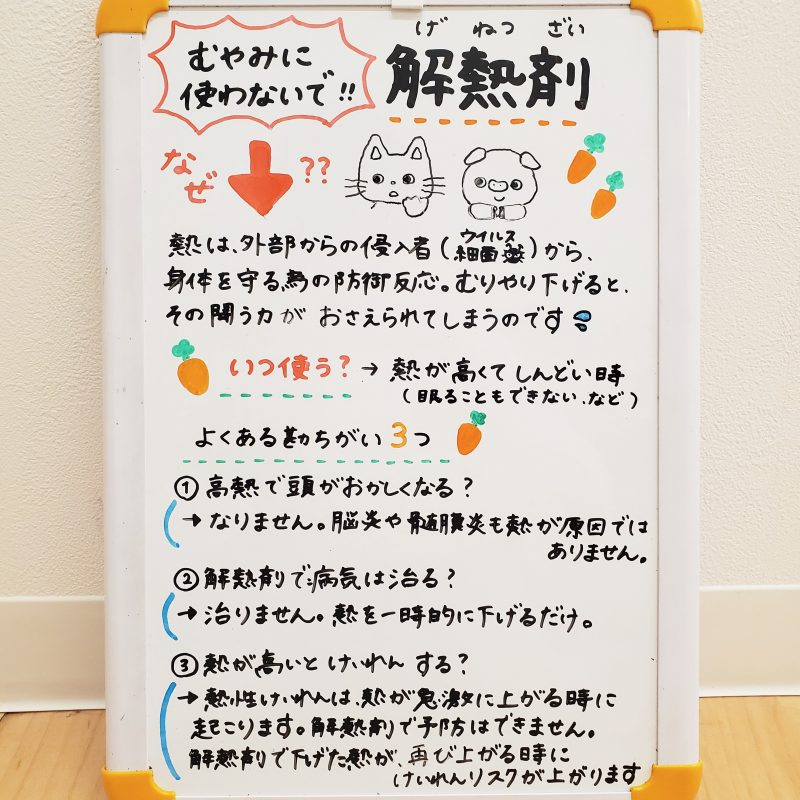 むやみに
使わないで!!
げ ねつ ざい
解熱剤
なぜ
??
熱は、外部からの侵入者(細菌
ウイルス
)から、
身体を守る為の防御反応。むりやり下げると、
その闘う力が おさえられてしまうのです
いつ使う? → 熱が高くてしんどい時
(眠ることもできない、など)
よくある勘ちがい3つ
① 高熱で頭がおかしくなる?
→ なりません。脳炎や髄膜炎も熱が原因では
ありません。
② 解熱剤で病気は治る?
→ 治りません。熱を一時的に下げるだけ。
③ 熱が高いと けいれん する?
→ 熱性けいれんは、熱が急激に上がる時に
起こります。解熱剤で予防はできません。
解熱剤で下げた熱が、再び上がる時に
けいれんリスクが上がります